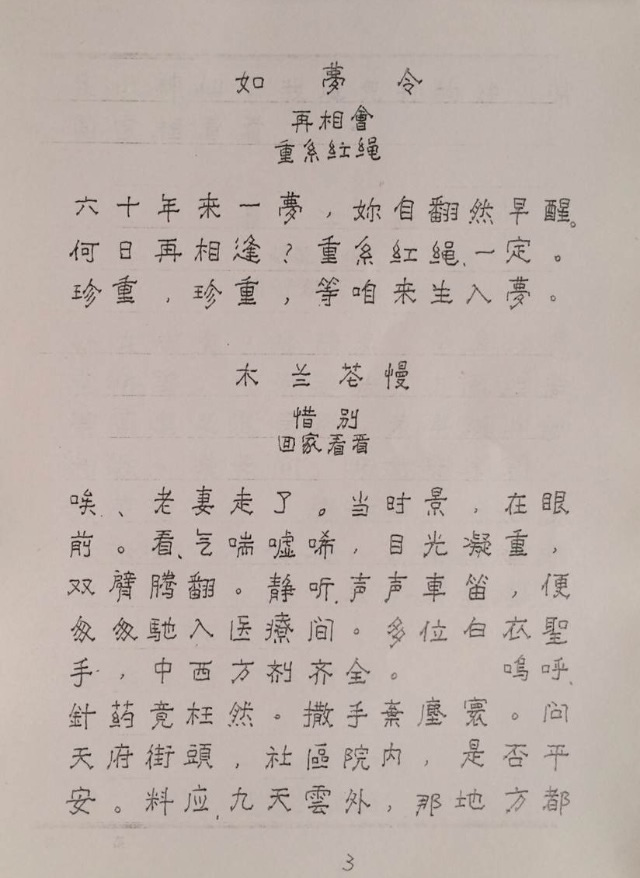 如夢令
再相會
重系红绳
六十年来一夢，妳自翻然早醒。
何日再相逢？重系红绳、一定。
珍重，珍重，等咱来生入夢。
木兰花慢
惜别
回家看看
唉、老妻走了。当时景，在眼
前。看、气喘嘘唏，目光凝重，
双臂腾翻。静听、声声車笛，便
匆匆馳入医療间。多位白衣聖
手，中西方剂齐全。 嗚呼、
針药竟枉然。撒手棄塵寰。问
天府街頭，社區院内，是否平
安。料应、九天雲外，那地方都
3